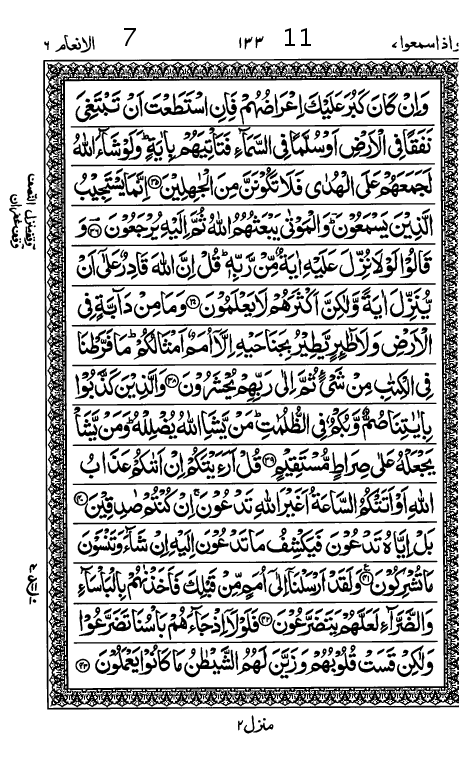 واذا سمعوا، 11 ۱۳۳ 7 الانعام ۶
وَاِنْ كَانَ كَبُرَ عَلَيْكَ اِعْرَاضُهُمْ فَاِنِ اسْتَطَعْتَ اَنْ تَبْتَغِىَ
نَفَقًا فِى الْاَرْضِ اَوْ سُلَّمًا فِى السَّمَآءِ فَتَاْتِيَهُمْ بِاٰيَةٍ ؕ وَلَوْ شَآءَ اللّٰهُ
لَجَمَعَهُمْ عَلَى الْهُدٰى فَلَا تَكُوْنَنَّ مِنَ الْجٰهِلِيْنَ ﴿۳۵﴾ اِنَّمَا يَسْتَجِيْبُ
الَّذِيْنَ يَسْمَعُوْنَ ؔؕ وَالْمَوْتٰى يَبْعَثُهُمُ اللّٰهُ ثُمَّ اِلَيْهِ يُرْجَعُوْنَ ﴿۳۶﴾ وَ
قَالُوْا لَوْلَا نُزِّلَ عَلَيْهِ اٰيَةٌ مِّنْ رَّبِّهٖ ؕ قُلْ اِنَّ اللّٰهَ قَادِرٌ عَلٰٓى اَنْ
يُّنَزِّلَ اٰيَةً وَّلٰكِنَّ اَكْثَرَهُمْ لَا يَعْلَمُوْنَ ﴿۳۷﴾ وَمَا مِنْ دَآبَّةٍ فِى
الْاَرْضِ وَلَا طٰٓئِرٍ يَّطِيْرُ بِجَنَاحَيْهِ اِلَّاۤ اُمَمٌ اَمْثَالُكُمْ ؕ مَا فَرَّطْنَا
فِى الْكِتٰبِ مِنْ شَىْءٍ ثُمَّ اِلٰى رَبِّهِمْ يُحْشَرُوْنَ ﴿۳۸﴾ وَالَّذِيْنَ كَذَّبُوْا
بِاٰيٰتِنَا صُمٌّ وَّبُكْمٌ فِى الظُّلُمٰتِ ؕ مَنْ يَّشَاِ اللّٰهُ يُضْلِلْهُ ؕ وَمَنْ يَّشَاْ
يَجْعَلْهُ عَلٰى صِرَاطٍ مُّسْتَقِيْمٍ ﴿۳۹﴾ قُلْ اَرَءَيْتَكُمْ اِنْ اَتٰٮكُمْ عَذَابُ
اللّٰهِ اَوْ اَتَتْكُمُ السَّاعَةُ اَغَيْرَ اللّٰهِ تَدْعُوْنَ ۚ اِنْ كُنْتُمْ صٰدِقِيْنَ ﴿۴۰﴾
بَلْ اِيَّاهُ تَدْعُوْنَ فَيَكْشِفُ مَا تَدْعُوْنَ اِلَيْهِ اِنْ شَآءَ وَتَنْسَوْنَ
مَا تُشْرِكُوْنَ ﴿۴۱﴾ وَلَقَدْ اَرْسَلْنَاۤ اِلٰٓى اُمَمٍ مِّنْ قَبْلِكَ فَاَخَذْنٰهُمْ بِالْبَاْسَآءِ
وَالضَّرَّآءِ لَعَلَّهُمْ يَتَضَرَّعُوْنَ ﴿۴۲﴾ فَلَوْلَاۤ اِذْ جَآءَهُمْ بَاْسُنَا تَضَرَّعُوْا
وَلٰكِنْ قَسَتْ قُلُوْبُهُمْ وَزَيَّنَ لَهُمُ الشَّيْطٰنُ مَا كَانُوْا يَعْمَلُوْنَ ﴿۴۳﴾
منزل ۲